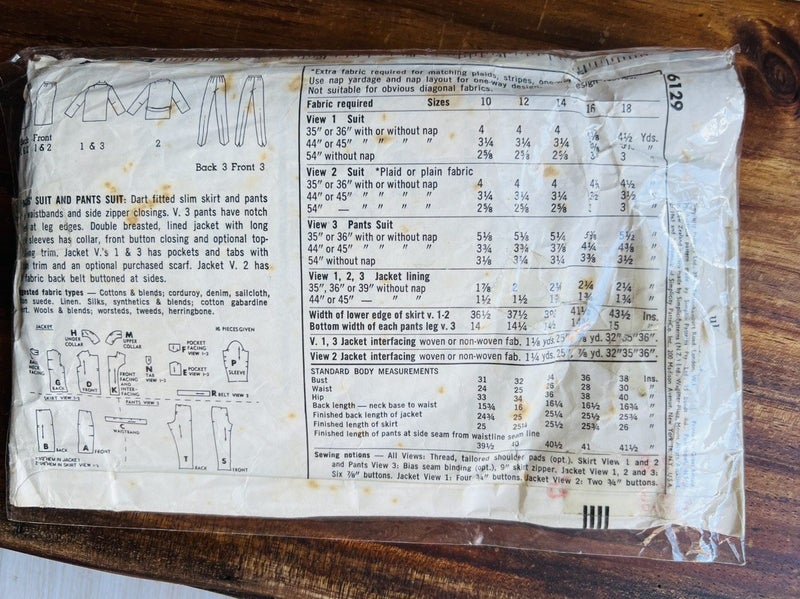 6129
Front
1 & 2
1 & 3
2
Back 3 Front 3
SUIT AND PANTS SUIT: Dart fitted slim skirt and pants
waistbands and side zipper closings. V. 3 pants have notch
at leg edges. Double breasted, lined jacket with long
sleeves has collar, front button closing and optional top-
trim, Jacket V.'s 1 & 3 has pockets and tabs with
trim and an optional purchased scarf. Jacket V. 2 has
fabric back belt buttoned at sides.
fabric types — Cottons & blends; corduroy, denim, sailcloth,
suede. Linen. Silks, synthetics & blends; cotton gabardine
Wools & blends; worsteds, tweeds, herringbone.
JACKET
H UNDER COLLAR
M UPPER COLLAR
16 PIECES GIVEN
NECK FACING
G BACK
D FRONT
K FRONT FACING AND INTER-FACING
N TAB VIEW 1-3
J POCKET FACING VIEW 1-3
E POCKET VIEW 1-3
P SLEEVE
R BELT VIEW 2
SKIRT VIEW 1-2
PANTS VIEW 3
B BACK
A FRONT
C WAISTBAND
T BACK
S FRONT
*Extra fabric required for matching plaids, stripes,
Use nap yardage and nap layout for one-way
Not suitable for obvious diagonal fabrics.
Fabric required Sizes 10 12 14 16 18
View 1 Suit
35" or 36" with or without nap 4 4 4 4½ Yds.
44" or 45" " " " " 3¼ 3¼ 3¼ "
54" without nap 2⅝ 2⅝ 2⅝ 3 "
View 2 Suit *Plaid or plain fabric
35" or 36" with or without nap 4 4 4 4½ "
44" or 45" " " " " 3¼ 3¼ 3¼ 3½ "
54" — " " " 2⅝ 2⅝ 2⅝ 3 "
View 3 Pants Suit
35" or 36" with or without nap 5⅛ 5⅛ 5¼ 5½ "
44" or 45" " " " " 3¾ 3¾ 3⅞ 4¼ 4⅜ "
54" without nap 3⅛ 3¼ 3¼ 3⅜ 3½ "
View 1, 2, 3 Jacket lining
35", 36" or 39" without nap 1⅞ 2 2¼ 2¼ "
44" or 45" — " " 1½ 1½ 1¾ "
Width of lower edge of skirt v. 1-2 36½ 37½ 43½ Ins.
Bottom width of each pants leg v. 3 14 14¼ 15 "
V. 1, 3 Jacket interfacing woven or non-woven fab. 1⅛ yds. 25" ⅞ yd. 32"35"36".
View 2 Jacket interfacing woven or non-woven fab. 1¼ yds. 25", ⅞ yd. 32"35"36".
STANDARD BODY MEASUREMENTS
Bust 31 32 34 36 38 Ins.
Waist 24 25 26 28 30 "
Hip 33 34 36 38 40 "
Back length — neck base to waist 15¾ 16 16¼ 16½ 16¾ "
Finished back length of jacket 24¾ 25 25¼ 25½ 25¾ "
Finished length of skirt 25 25¼ 25½ 25¾ 26 "
Finished length of pants at side seam from waistline seam line
39½ 40 40½ 41 41½ "
Sewing notions — All Views: Thread, tailored shoulder pads (opt.). Skirt View 1 and 2
and Pants View 3: Bias seam binding (opt.), 9" skirt zipper. Jacket View 1, 2 and 3:
Six ⅞" buttons. Jacket View 1: Four ¾" buttons. Jacket View 2: Two ¾" buttons.